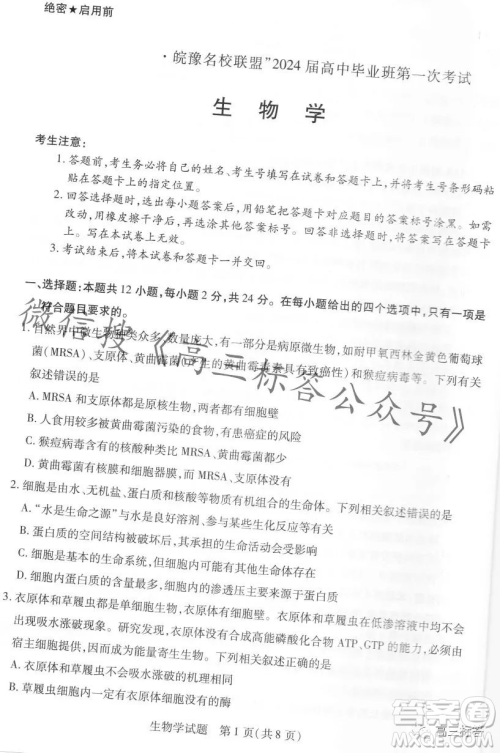 绝密★启用前
·皖豫名校联盟”2024届高中毕业班第一次考试
生物学
考生注意：
1. 答题前，考生务必将自己的姓名、考生号填写在试卷和答题卡上，并将考生号条形码粘
贴在答题卡上的指定位置。
2. 回答选择题时，选出每小题答案后，用铅笔把答题卡对应题目的答案标号涂黑。如需
改动，用橡皮擦干净后，再选涂其他答案标号。回答非选择题时，将答案写在答题卡
上。写在本试卷上无效。
3. 考试结束后，将本试卷和答题卡一并交回。
一、选择题：本题共12小题，每小题2分，共24分。在每小题给出的四个选项中，只有一项是
符合题目要求的。
1. 自然界中微生物种类众多、数量庞大，有一部分是病原微生物，如耐甲氧西林金黄色葡萄球
菌（MRSA）、黄曲霉菌（产生的黄曲霉毒素具有致癌性）和猴痘病毒等。下列有关
叙述错误的是
A. MRSA和支原体都是原核生物，两者都有细胞壁
B. 人食用较多被黄曲霉菌污染的食物，有患癌症的风险
C. 猴痘病毒含有的核酸种类比MRSA的核酸种类少
D. 黄曲霉菌有核膜和细胞器膜，而MRSA没有核膜和细胞器膜
2. 细胞是由水、无机盐、蛋白质和核酸等物质有机组合的生命体。下列相关叙述错误的是
A. “水是生命之源”与水是良好溶剂、参与某些化学反应等相关
B. 蛋白质的空间结构被破坏时，其特定功能会发生改变
C. 细胞是基本的生命系统，但任何一种物质都不能单独完成生命活动
D. 细胞内蛋白质的含量最多，细胞内的渗透压主要来源于蛋白质
3. 衣原体和草履虫都是单细胞生物，衣原体有细胞壁。衣原体和草履虫在一般淡水环境中不会
出现吸水涨破现象。下列推测错误的是
A. 衣原体和草履虫在淡水环境中都不会吸水涨破
B. 衣原体和草履虫
生物学试题 第1页（共8页）
微信搜《高三标答公众号》
高三标答
答案圈
MXQE.COM